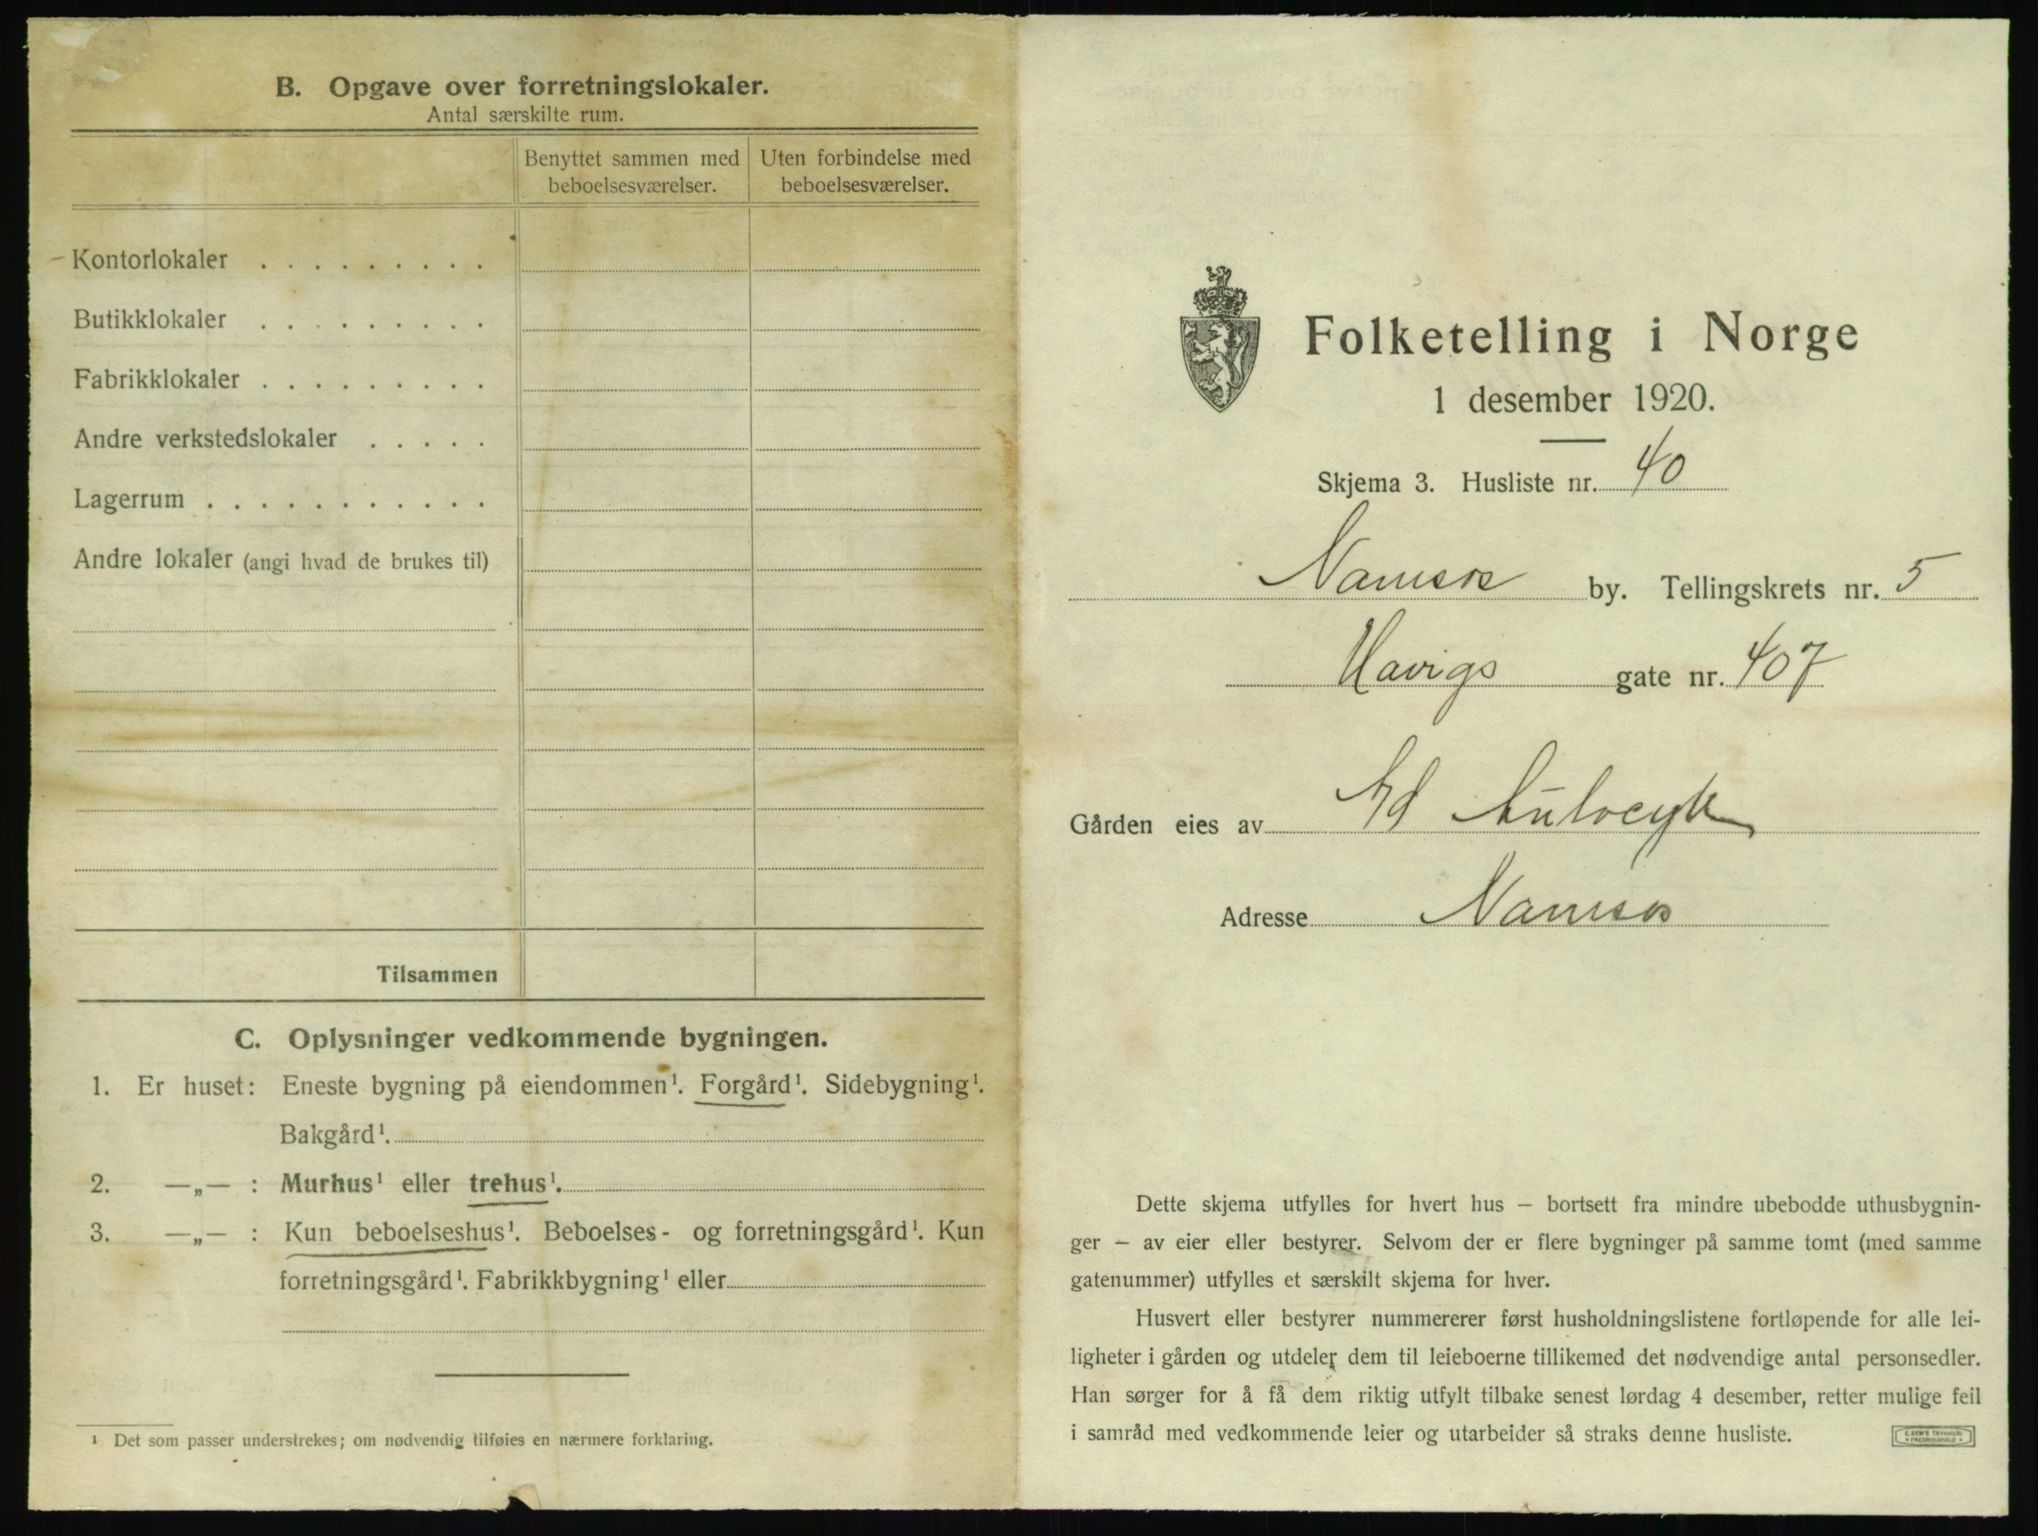 B. Opgave over forretningslokaler.
Antal særskilte rum.
Benyttet sammen med beboelsesværelser.
Uten forbindelse med beboelsesværelser.
Kontorlokaler . . . . . . . . .
Butikklokaler . . . . . . . . .
Fabrikklokaler . . . . . . . . .
Andre verkstedslokaler . . . . .
Lagerrum . . . . . . . . . . .
Andre lokaler (angi hvad de brukes til)
Tilsammen
C. Oplysninger vedkommende bygningen.
1. Er huset: Eneste bygning på eiendommen¹. Forgård¹. Sidebygning¹.
Bakgård¹.
2. —„— : Murhus¹ eller trehus¹.
3. —„— : Kun beboelseshus¹. Beboelses- og forretningsgård¹. Kun
forretningsgård¹. Fabrikkbygning¹ eller
¹ Det som passer understrekes; om nødvendig tilføies en nærmere forklaring.
Folketelling i Norge
1 desember 1920.
Skjema 3. Husliste nr. 40
Namsos by. Tellingskrets nr. 5
Havigs gate nr. 407
Gården eies av
Adresse Namsos
Dette skjema utfylles for hvert hus – bortsett fra mindre ubebodde uthusbygnin-
ger – av eier eller bestyrer. Selvom der er flere bygninger på samme tomt (med samme
gatenummer) utfylles et særskilt skjema for hver.
Husvert eller bestyrer nummererer først husholdningslistene fortløpende for alle lei-
ligheter i gården og utdeler dem til leieboerne tillikemed det nødvendige antal personsedler.
Han sørger for å få dem riktig utfylt tilbake senest lørdag 4 desember, retter mulige feil
i samråd med vedkommende leier og utarbeider så straks denne husliste.